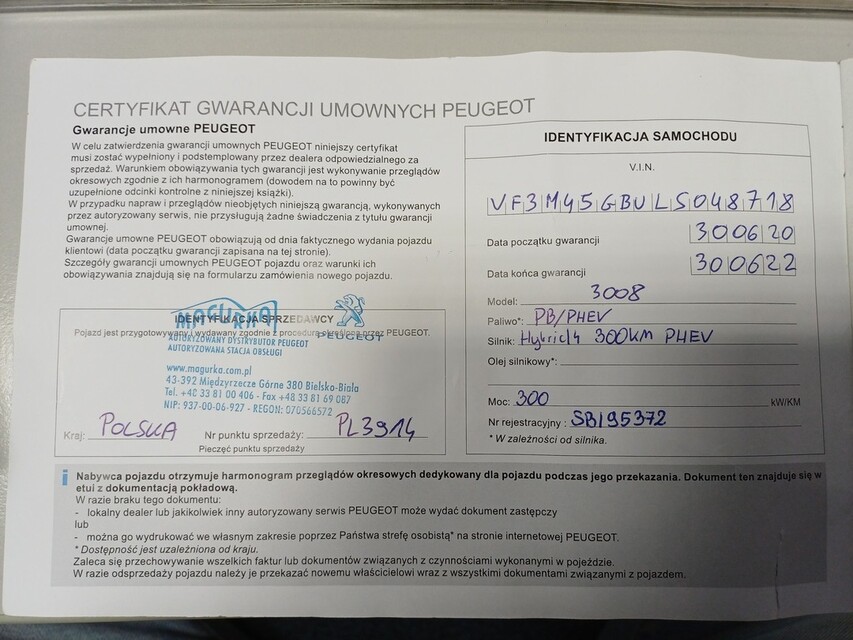 CERTYFIKAT GWARANCJI UMOWNYCH PEUGEOT
Gwarancje umowne PEUGEOT
W celu zatwierdzenia gwarancji umownych PEUGEOT niniejszy certyfikat
musi zostać wypełniony i podstemplowany przez dealera odpowiedzialnego za
sprzedaż. Warunkiem obowiązywania tych gwarancji jest wykonywanie przeglądów
okresowych zgodnie z ich harmonogramem (dowodem na to powinny być
uzupełnione odcinki kontrolne z niniejszej książki).
W przypadku napraw i przeglądów nieobjętych niniejszą gwarancją, wykonywanych
przez autoryzowany serwis, nie przysługują żadne świadczenia z tytułu gwarancji
umownej.
Gwarancje umowne PEUGEOT obowiązują od dnia faktycznego wydania pojazdu
klientowi (data początku gwarancji zapisana na tej stronie).
Szczegóły gwarancji umownych PEUGEOT pojazdu oraz warunki ich
obowiązywania znajdują się na formularzu zamówienia nowego pojazdu.
IDENTYFIKACJA SPRZEDAWCY
Pojazd jest przygotowywany i wydawany zgodnie z procedurą określoną przez PEUGEOT.
MAGURKA
PEUGEOT
AUTORYZOWANY DYSTRYBUTOR PEUGEOT
AUTORYZOWANA STACJA OBSŁUGI
www.magurka.com.pl
43-392 Międzyrzecze Górne 380 Bielsko-Biala
Tel. +48 33 81 00 406 - Fax +48 33 81 69 087
NIP: 937-00-06-927 - REGON: 070566572
Kraj: POLSKA Nr punktu sprzedaży: PL3914
Pieczęć punktu sprzedaży
IDENTYFIKACJA SAMOCHODU
V.I.N.
VF3M45GBULS048718
Data początku gwarancji 300620
Data końca gwarancji 300622
Model: 3008
Paliwo*: PB/PHEV
Silnik: Hybrid4 300km PHEV
Olej silnikowy*:
Moc: 300 kW/KM
Nr rejestracyjny: SBI95372
* W zależności od silnika.
i
Nabywca pojazdu otrzymuje harmonogram przeglądów okresowych dedykowany dla pojazdu podczas jego przekazania. Dokument ten znajduje się w
etui z dokumentacją pokładową.
W razie braku tego dokumentu:
- lokalny dealer lub jakikolwiek inny autoryzowany serwis PEUGEOT może wydać dokument zastępczy
lub
- można go wydrukować we własnym zakresie poprzez Państwa strefę osobistą* na stronie internetowej PEUGEOT.
* Dostępność jest uzależniona od kraju.
Zaleca się przechowywanie wszelkich faktur lub dokumentów związanych z czynnościami wykonanymi w pojeździe.
W razie odsprzedaży pojazdu należy je przekazać nowemu właścicielowi wraz z wszystkimi dokumentami związanymi z pojazdem.